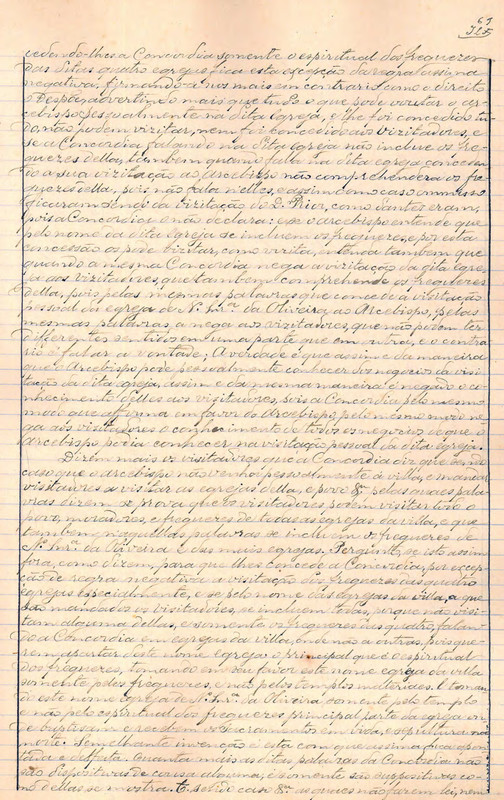 cedendo-lhes a Concordia somente o espiritual dos freguezes
das ditas quatro egrejas fica esta excepção da regra assim a
negativa, firmando-a nos mais em contrario como é direito
e Despois advertindo mais que tudo o que pode vizitar o ar-
cebispo pessoalmente na dita egreja, e lhe foi concedido to-
do não podem vizitar, nem foi concedido aos vizitadores, e
se a Concordia falando na dita egreja não inclue os fre-
guezes della, tambem quando fala na dita egreja conceden-
do a sua vizitação ao Arcebispo não comprehendera os fre-
guezes della, pois não fala n'elles, e assim como caso ommisso
ficaram sendo da vizitação do D. Prior, como d'antes eram,
pois a Concordia o não declara: e se o arcebispo entende que
pelo nome da dita egreja se incluem os freguezes, e por esta
concessão os pode vizitar, como vizita, entenda tambem que
quando a mesma Concordia nega a vizitação da dita egre-
ja aos vizitadores, que tambem comprehende os freguezes
della, pois pelas mesmas palavras que concede a vizitação
pessoal da egreja de N. Snrª da Oliveira ao Arcebispo, pelas
mesmas palavras, a nega aos vizitadores, que não podem ter
differentes sentidos em uma parte que em outra, e o contra-
rio é falar a vontade; A verdade é que assim e da maneira
que o Arcebispo pode pessoalmente conhecer dos negocios da vizi-
tação da dita egreja, assim e da mesma maneira é negado o co-
nhecimento d'elles aos vizitadores, pois a Concordia pelo mesmo
modo que affirma em favor do Arcebispo, pelo mesmo modo ne-
ga aos vizitadores o conhecimento de todos os negocios de que o
arcebispo podia conhecer, na vizitação pessoal da dita egreja.
Dirám mais os vizitadores que a Concordia diz que em
caso que o arcebispo não venha pessoalmente á villa, e mandar
vizitadores a vizitar as egrejas della, e povo &ª pelas quaes pala-
vras dizem se prova que os vizitadores podem vizitar todo o
povo, moradores, e freguezes de todas as egrejas da villa, e que
tambem n'aquellas palavras se incluem os freguezes de
N. Snrª da Oliveira e das mais egrejas. Pergunto, se isto assim
fora, como dizem, para que lhes concede a Concordia, por excep-
ção de regra negativa a vizitação dos freguezes das quatro
egrejas especialmente, e se pelo nome das egrejas da villa, a que
são mandados os vizitadores, se incluem todas, porque não vizi-
tam alguma dellas, e somente os freguezes das quatro, falan-
do a Concordia em egrejas da villa, onde não a outras, pois que-
rem apartar deste nome egreja o principal que é o espiritual
dos freguezes, tomando em seu favor este nome egreja da villa
somente pelos freguezes, e não pelos templos materiaes. E toman-
do este nome egreja de N. Snrª da Oliveira somente pelo templo
e não pelo espiritual dos freguezes principal parte da egreja on-
de baptisam e recebem os Sacramentos em vida, e sepultura na
morte. Semelhante invenção é esta com que
e disputa. Quanto mais as ditas palavras da Concordia não
são dispositivas de cousa alguma, e somente são suppositivas co-
mo d'ellas se mostra. E sendo caso &ª as quaes não fazem lei, nem